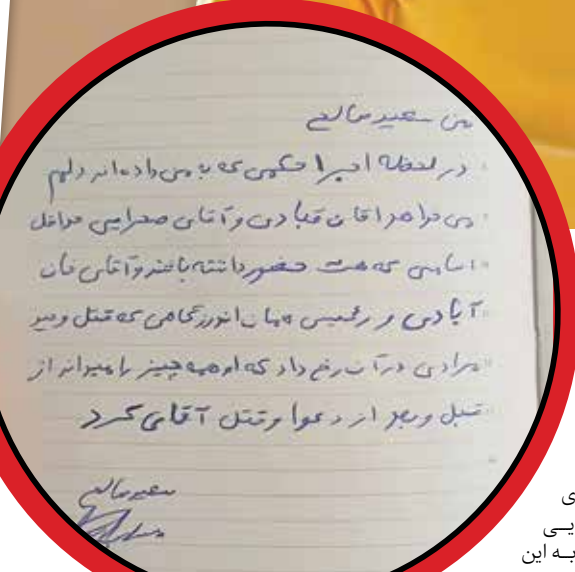 من سعید صالح
در لحظه اجرا حکمی که به من داده اند دلم
می خواهد آقای قبادی و آقای صحرایی مراحل
اساسی که هست حضور داشته باشند و آقای خان
آبادی و رئیس مهمانخانه ای که قتل و میر
مرادی در آن رخ داد که او همه چیز را میداند از
قبل و بعد از دعوا و قتل آقای کرد
سعید صالح
ی
یی
به این